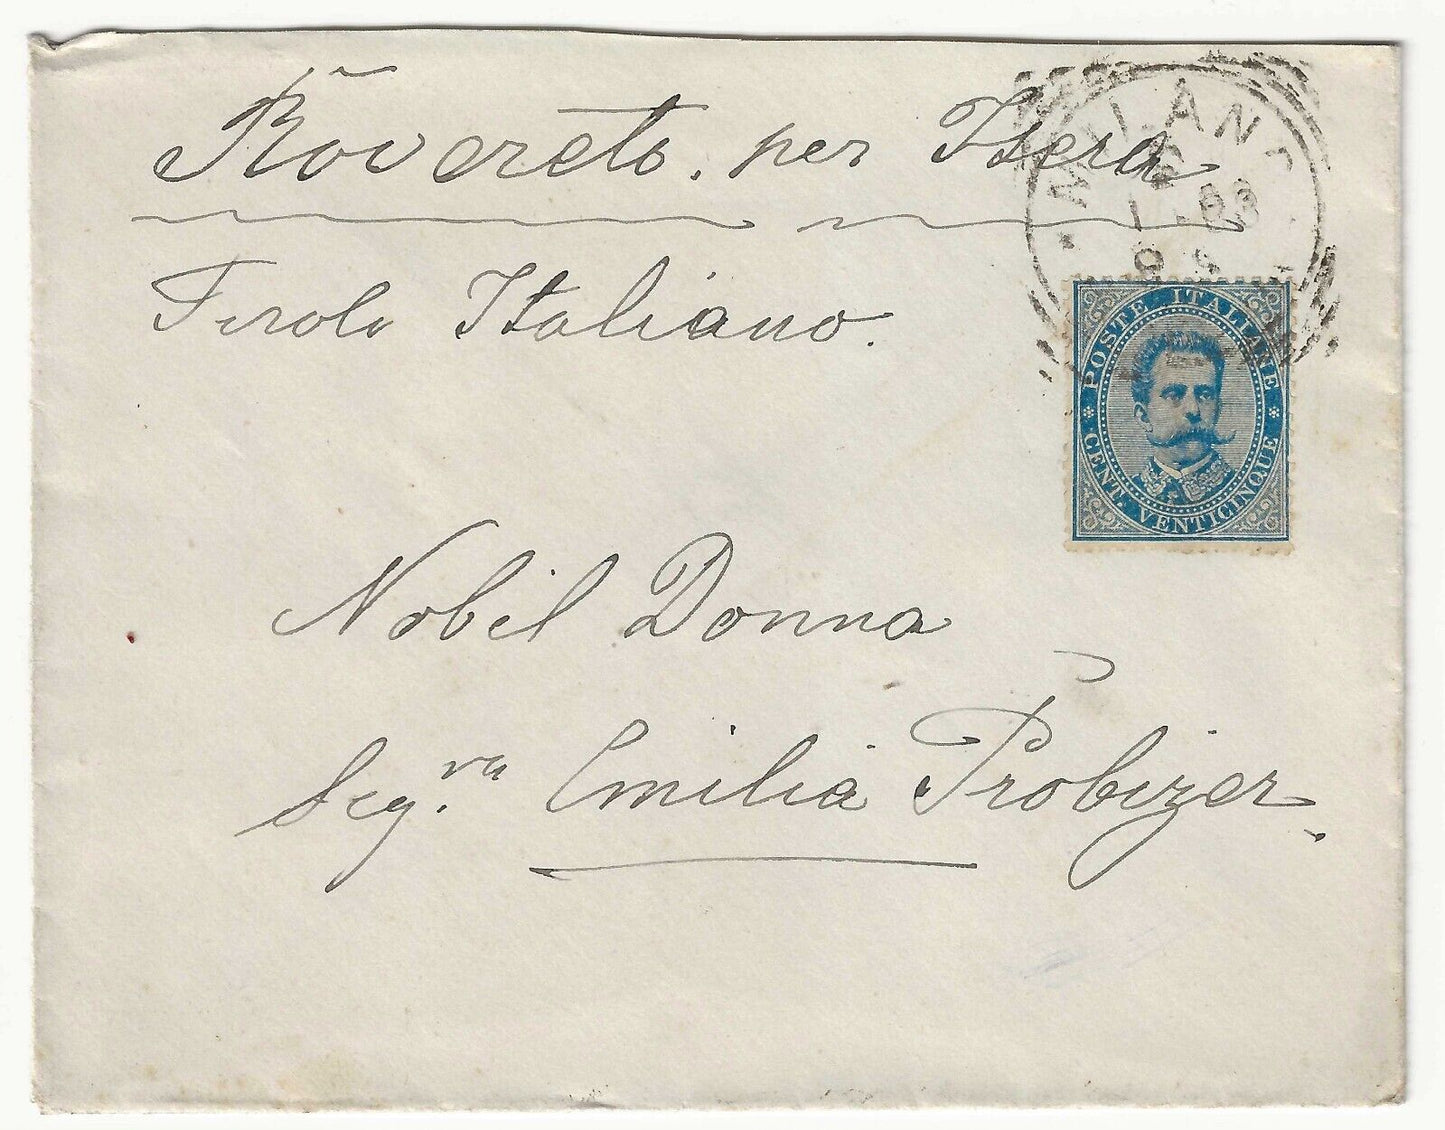 Rovereto. per Isera
Tirolo Italiano.
MILANO
POSTE ITALIANE
CENT. VENTICINQUE
Nobil Donna
Sig.ra Emilia Probizer.